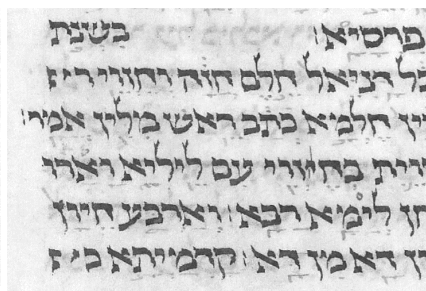 פרסיא׃ בשנת
בל דניאל חלם חזה וחזוי רי
ין חלמא כתב ראש מלין אמר׃
וית בחזוי עם ליליא וארו
חן לימא רבא׃ וארבע חיון
ין דא מן דא׃ קדמיתא כ